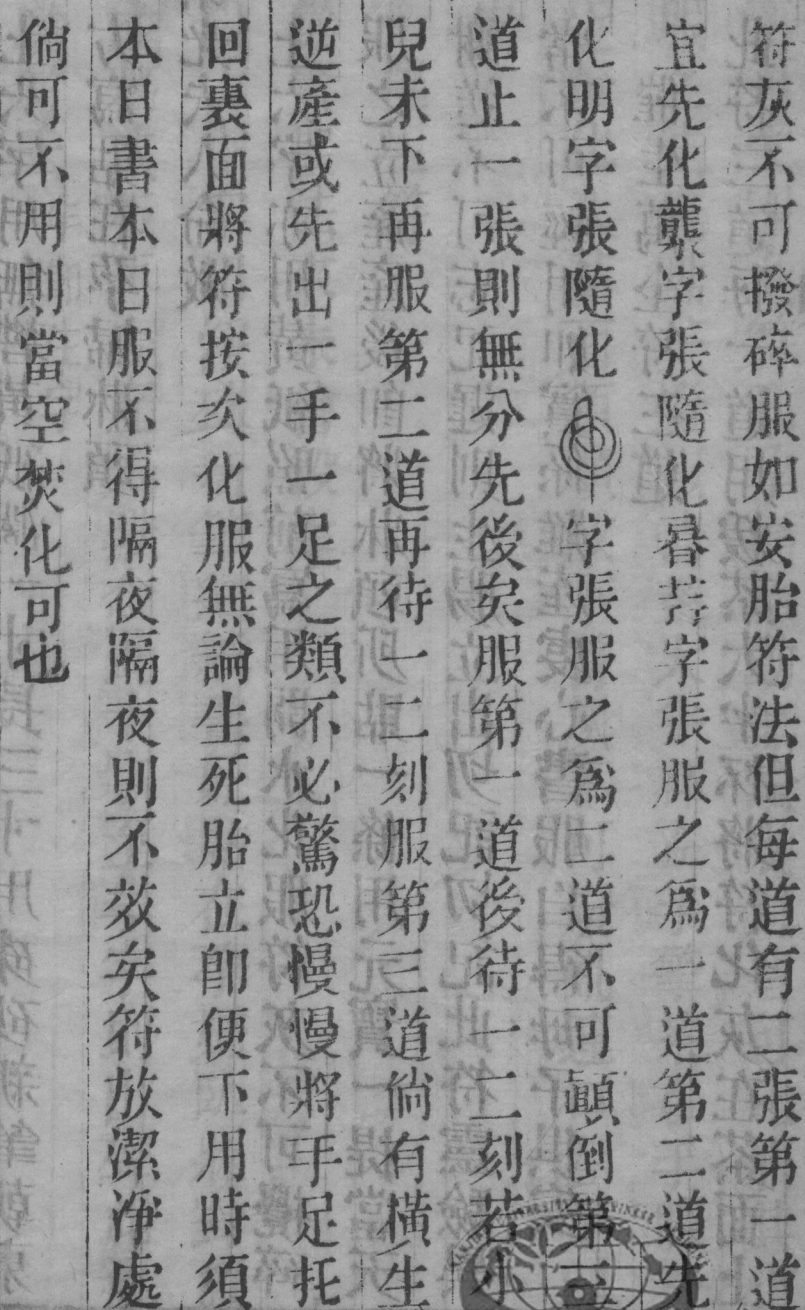 符灰不可撥碎服如安胎符法但每道有二張第一道
宜先化襲字張隨化晷字張服之爲一道第二道先
化明字張隨化字張服之爲二道不可顚倒第三
道止一張則無分先後矣服第一道後待一二刻若小
兒未下再服第二道再待一二刻服第三道倘有橫生
逆產或先出一手一足之類不必驚恐慢慢將手足托
回裏面將符按次化服無論生死胎立卽便下用時須
本日書本日服不得隔夜隔夜則不效矣符放潔淨處
倘可不用則當空焚化可也